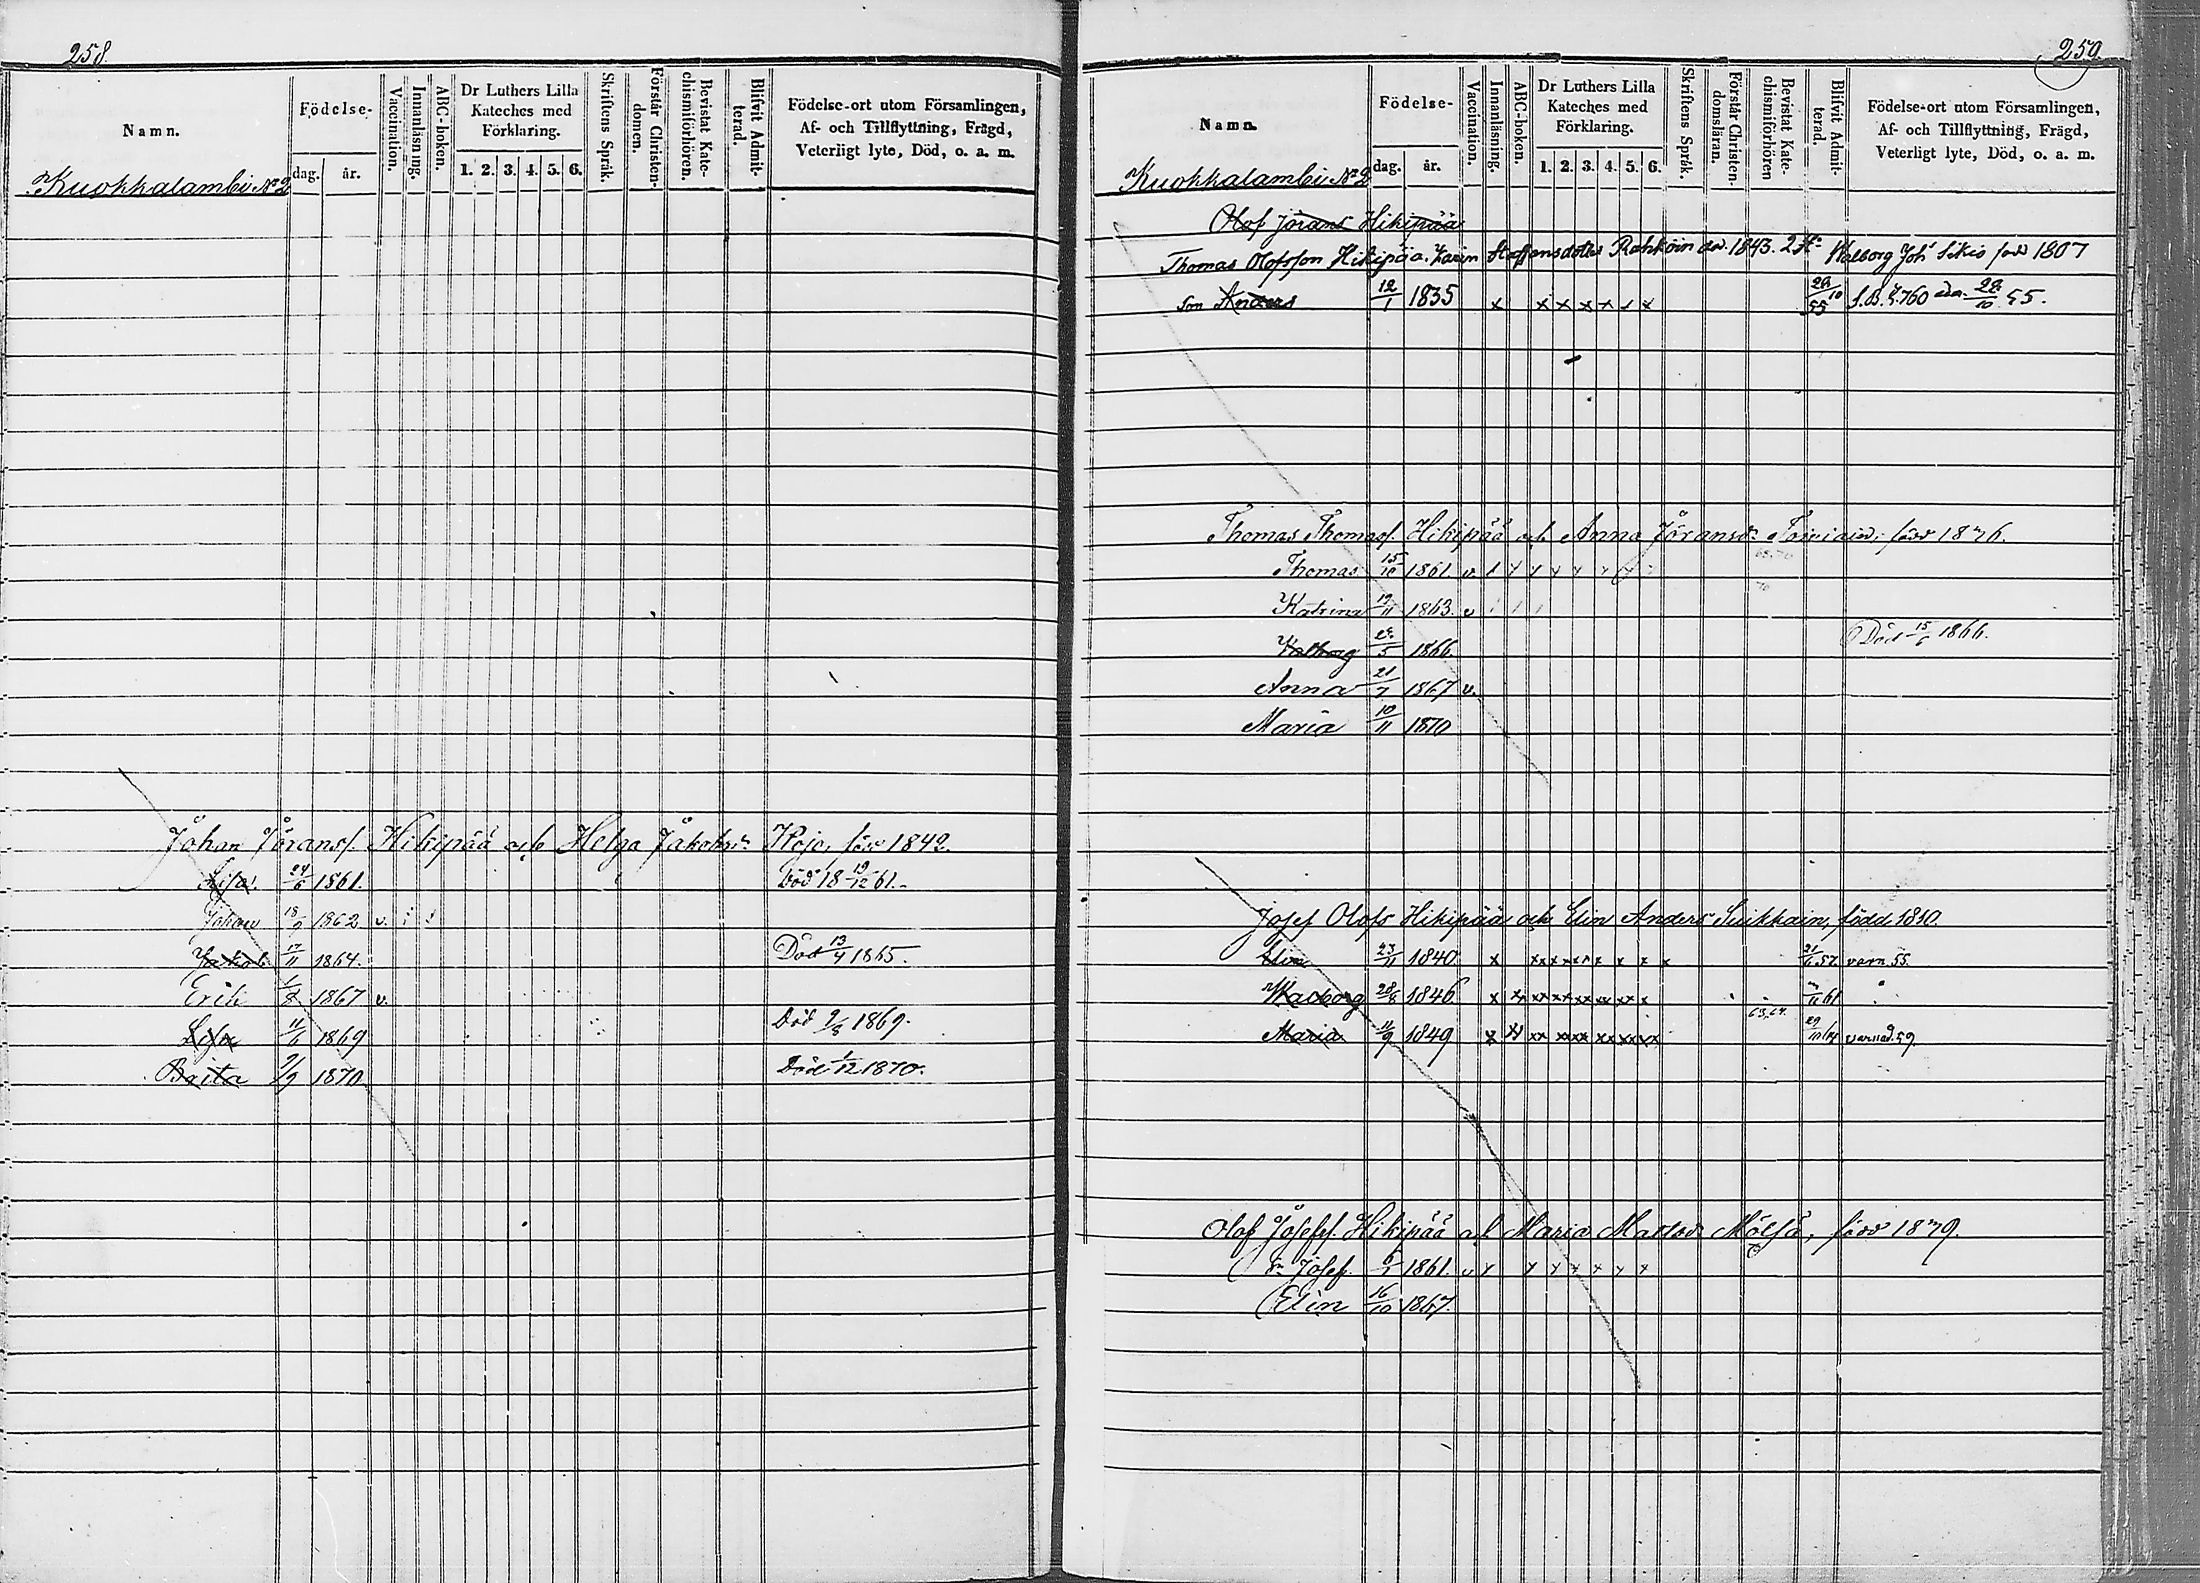 258.
Namn. Födelse- dag. år. Vaccination. Innanläsning. ABC-boken. Dr Luthers Lilla Kateches med Förklaring. 1. 2. 3. 4. 5. 6. Skriftens Språk. Förstår Christendomen. Bevistat Katechismiförhören. Blifvit Admitterad. Födelse-ort utom Församlingen, Af- och Tillflyttning, Frägd, Veterligt lyte, Död, o. a. m.
Kuokkalambi No 2
Johan Jöranss. Hikipää och Helga Jakobsdr född 1842.
Lisa 24/6 1861. Död 18 19/12 61.
Johan 18/9 1862 v.
Jakob 17/11 1864. Död 13/4 1865.
Erik 1/8 1867 v.
Lisa 11/6 1869 Död 9/8 1869.
Brita 2/9 1870 Död 1/12 1870.
259.
Namn. Födelse- dag. år. Vaccination. Innanläsning. ABC-boken. Dr Luthers Lilla Kateches med Förklaring. 1. 2. 3. 4. 5. 6. Skriftens Språk. Förstår Christendomsläran. Bevistat Katechismiförhören Blifvit Admitterad. Födelse-ort utom Församlingen, Af- och Tillflyttning, Frägd, Veterligt lyte, Död, o. a. m.
Kuokkalambi No 2
Olof Jörans Hikipää
Thomas Olofsson Hikipää. Karin Staffansdoter död. 1843. 2 Walborg Joh född 1807
son Anders 12/1 1835 x x x x x x x 28/10 55 S.B. 760 28/10 55.
Thomas Thomass. Hikipää och Anna Jöransdr född
Thomas 15/10 1861. v.
Katrina 19/11 1863. v
Walborg 28/5 1866. Död 15/6 1866.
Anna 21/7 1867 v.
Maria 10/11 1870
Josef Olofs Hikipää och Elin Anders Suikkain, född 1810.
Elin 23/11 1840 x xx xx x x x x x 21/6 57 varn. 55.
Walborg 28/8 1846 x
Maria 11/9 1849 x varnad 59.
Olof Josefss. Hikipää och Maria Mattsdr Mölsä, född
Josef 1861. v
Elin 16/10 1867.